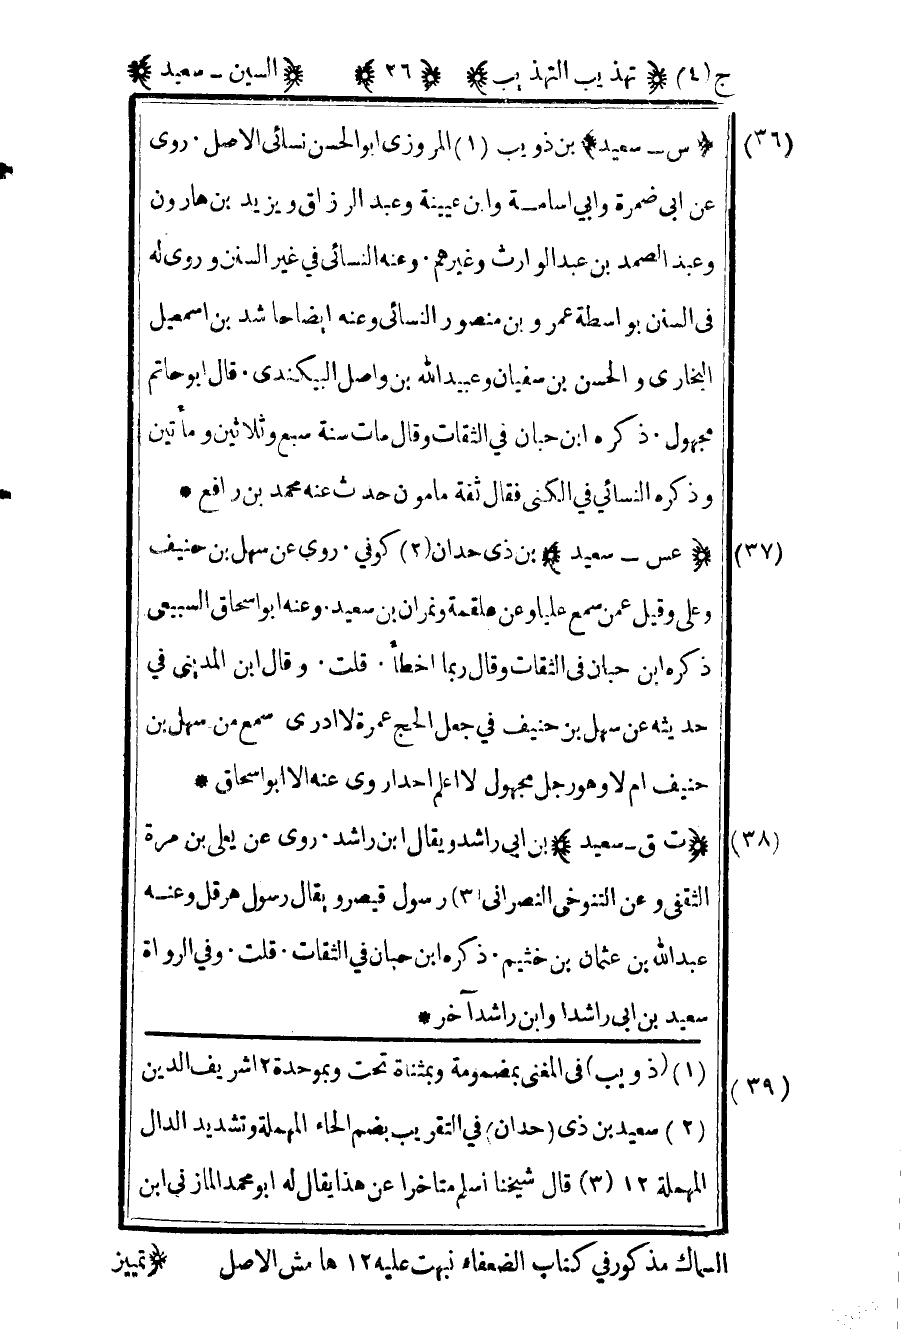 ج(٤) ﴿ تهذيب التهذيب ﴾ ﴿ ٢٦ ﴾ ﴿ السين ـ سعيد ﴾
(٣٦) ﴿ س ـ سعيد ﴾ بن ذويب (١) المروزى ابو الحسن نسائى الاصل · روى
عن ابى ضمرة وابي اسامة وابن عيينة وعبد الرزاق ويزيد بن هارون
وعبد الصمد بن عبد الوارث وغيرهم · وعنه النسائى في غير السنن وروى له
فى السنن بواسطة عمرو بن منصور النسائى وعنه ايضا حاشد بن اسمعيل
البخارى والحسن بن سفيان وعبيد الله بن واصل البيكندى · قال ابو حاتم
مجهول · ذكره ابن حبان في الثقات وقال مات سنة سبع وثلاثين ومأتين
وذكره النسائي في الكنى فقال ثقة مامون حدث عنه محمد بن رافع *
(٣٧) ﴿ عس ـ سعيد ﴾ بن ذى حدان (٢) كوفي · روى عن سهل بن حنيف
وعلى وقيل عمن سمع عليا وعن علقمة ونمران بن سعيد · وعنه ابو اسحاق السبيعى
ذكره ابن حبان فى الثقات وقال ربما اخطأ · قلت · وقال ابن المدينى في
حديثه عن سهل بن حنيف في جعل الحج عمرة لا ادرى سمع من سهل بن
حنيف ام لا وهو رجل مجهول لا اعلم احدا روى عنه الا ابو اسحاق *
(٣٨) ﴿ ت ق ـ سعيد ﴾ بن ابي راشد ويقال ابن راشد · روى عن يعلى بن مرة
الثقفى وعن التنوخى النصرانى (٣) رسول قيصر ويقال رسول هرقل وعنه
عبد الله بن عثمان بن خثيم · ذكره ابن حبان في الثقات · قلت · وفي الرواة
سعيد بن ابى راشد او ابن راشد آخر *
(٣٩) (١) (ذويب) فى المغنى بمضمومة وبمثناة تحت وبموحدة ١٢ شريف الدين
(٢) سعيد بن ذى (حدان) في التقريب بضم الحاء المهملة وتشديد الدال
المهملة ١٢ (٣) قال شيخنا اسلم متاخرا عن هذا يقال له ابو محمد المازنى ابن
السماك مذكور في كتاب الضعفاء نبهت عليه ١٢ هامش الاصل ﴿ تمييز